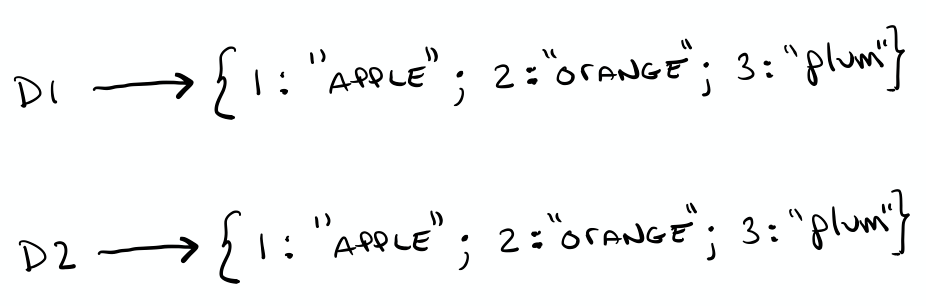 D1 → { 1 : "APPLE" ; 2 : "OrANGE" ; 3 : "plum" }
D2 → { 1 : "APPLE" ; 2 : "OrANGE" ; 3 : "plum" }